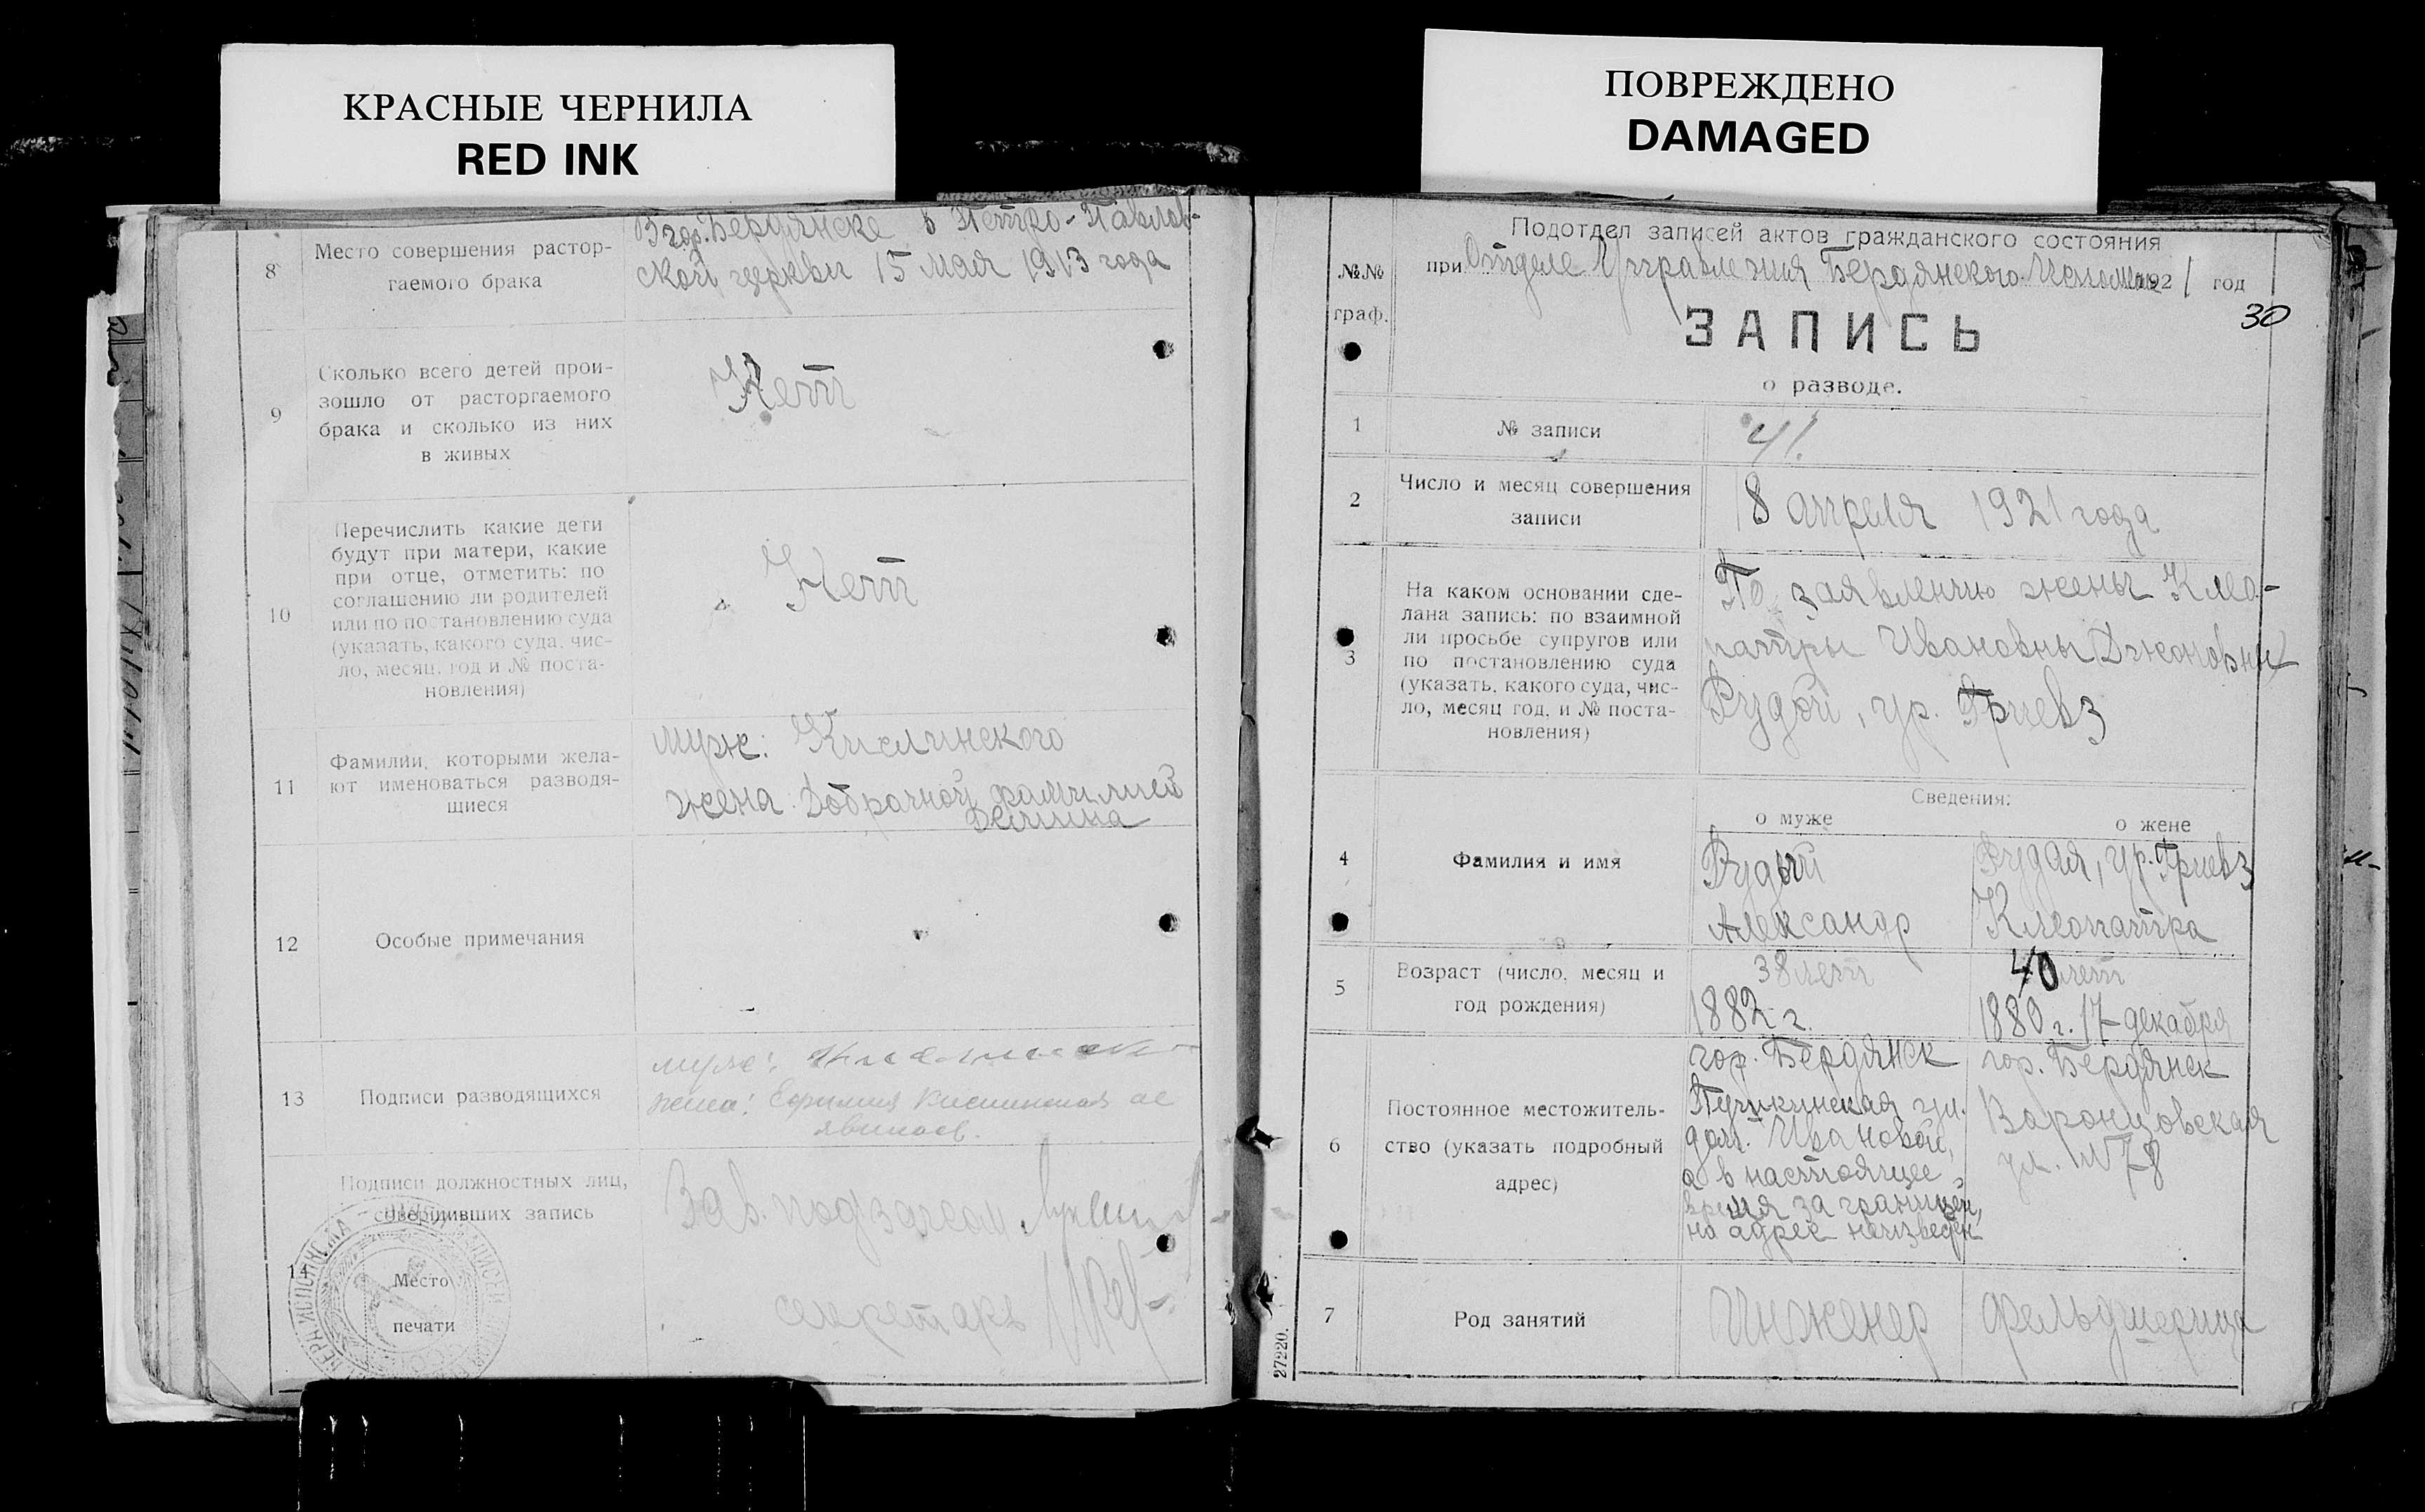 КРАСНЫЕ ЧЕРНИЛА
RED INK
ПОВРЕЖДЕНО
DAMAGED
8
Место совершения растор-
гаемого брака
В гор. Бердянске в Петро-Павлов-
ской церкви 15 мая 1913 года
9
Сколько всего детей прои-
зошло от расторгаемого
брака и сколько из них
в живых
Нет
10
Перечислить какие дети
будут при матери, какие
при отце, отметить: по
соглашению ли родителей
или по постановлению суда
(указать, какого суда, чис-
ло, месяц, год и № поста-
новления)
Нет
11
Фамилии, которыми жела-
ют именоваться разводя-
щиеся
муж: Кислинского
жена добрачной фамилией
12
Особые примечания
13
Подписи разводящихся
муж:
жена: Ефимия Кислинская не
явилась.
14
Подписи должностных лиц,
совершивших запись
Место
печати
Зав. подзагсом
секретарь
27220.
№№
граф.
Подотдел записей актов гражданского состояния
при Отделе Управления Бердянского Исполкома 1921 год
30
ЗАПИСЬ
о разводе.
1
№ записи
41.
2
Число и месяц совершения
записи
18 апреля 1921 года
3
На каком основании сде-
лана запись: по взаимной
ли просьбе супругов или
по постановлению суда
(указать, какого суда, чис-
ло, месяц год, и № поста-
новления)
По заявлению жены Клео-
патры Ивановны Джоновны
Рудой, ур. Гриевз
Сведения:
о муже
о жене
4
Фамилия и имя
Рудый
Александр
Рудая, ур. Гриевз
Клеопатра
5
Возраст (число, месяц и
год рождения)
38 лет
1882 г.
40 лет
1880 г. 17 декабря
6
Постоянное местожитель-
ство (указать подробный
адрес)
гор. Бердянск
Пушкинская ул.
дом. Ивановой,
а в настоящее
время за границей,
но адрес неизведен
гор. Бердянск
Воронцовская
ул. № 78
7
Род занятий
Инженер
фельдшерица